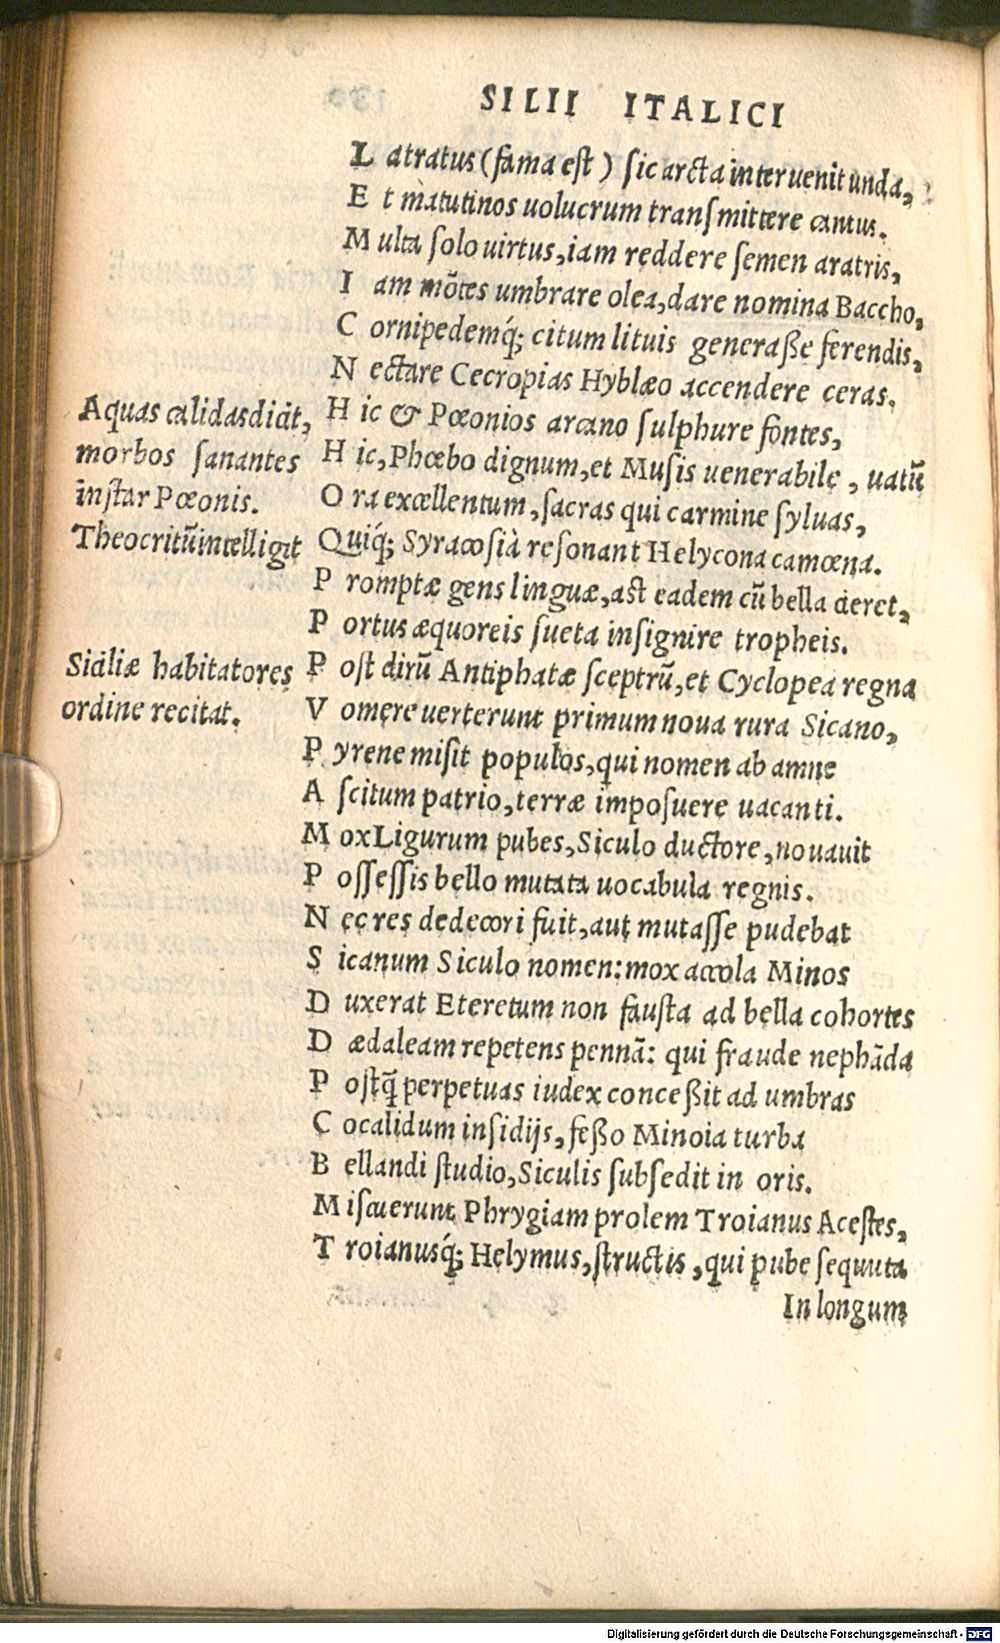 SILII ITALICI
L atratus (fama est) sic arcta interuenit unda,
E t matutinos uolucrum transmittere cantus.
M ulta solo uirtus, iam reddere semen aratris,
I am mōtes umbrare olea, dare nomina Baccho,
C ornipedemq́; citum lituis generaße ferendis,
N ectare Cecropias Hyblæo accendere ceras.
Aquas calidas dicit,
morbos sanantes
instar Pœonis.
H ic & Pœonios arcano sulphure fontes,
H ic, Phœbo dignum, et Musis uenerabile, uatū
O ra excellentum, sacras qui carmine syluas,
Theocritū intelligit
Quiq́; Syracosià resonant Helycona camœna.
P romptæ gens linguæ, ast eadem cū bella cieret,
P ortus æquoreis sueta insignire tropheis.
Siciliæ habitatores
ordine recitat.
P ost dirū Antiphatæ sceptrū, et Cyclopea regna
V omere uerterunt primum noua rura Sicano,
P yrene misit populos, qui nomen ab amne
A scitum patrio, terræ imposuere uacanti.
M ox Ligurum pubes, Siculo ductore, nouauit
P ossessis bello mutata uocabula regnis.
N ec res dedecori fuit, aut mutasse pudebat
S icanum Siculo nomen: mox accola Minos
D uxerat Eteretum non fausta ad bella cohortes
D ædaleam repetens pennā: qui fraude nephāda
P ostq̄ perpetuas iudex conceßit ad umbras
C ocalidum insidijs, feßo Minoia turba
B ellandi studio, Siculis subsedit in oris.
M iscuerunt Phrygiam prolem Troianus Acestes,
T roianusq́; Helymus, structis, qui pube sequuta
In longum
Digitalisierung gefördert durch die Deutsche Forschungsgemeinschaft - DFG